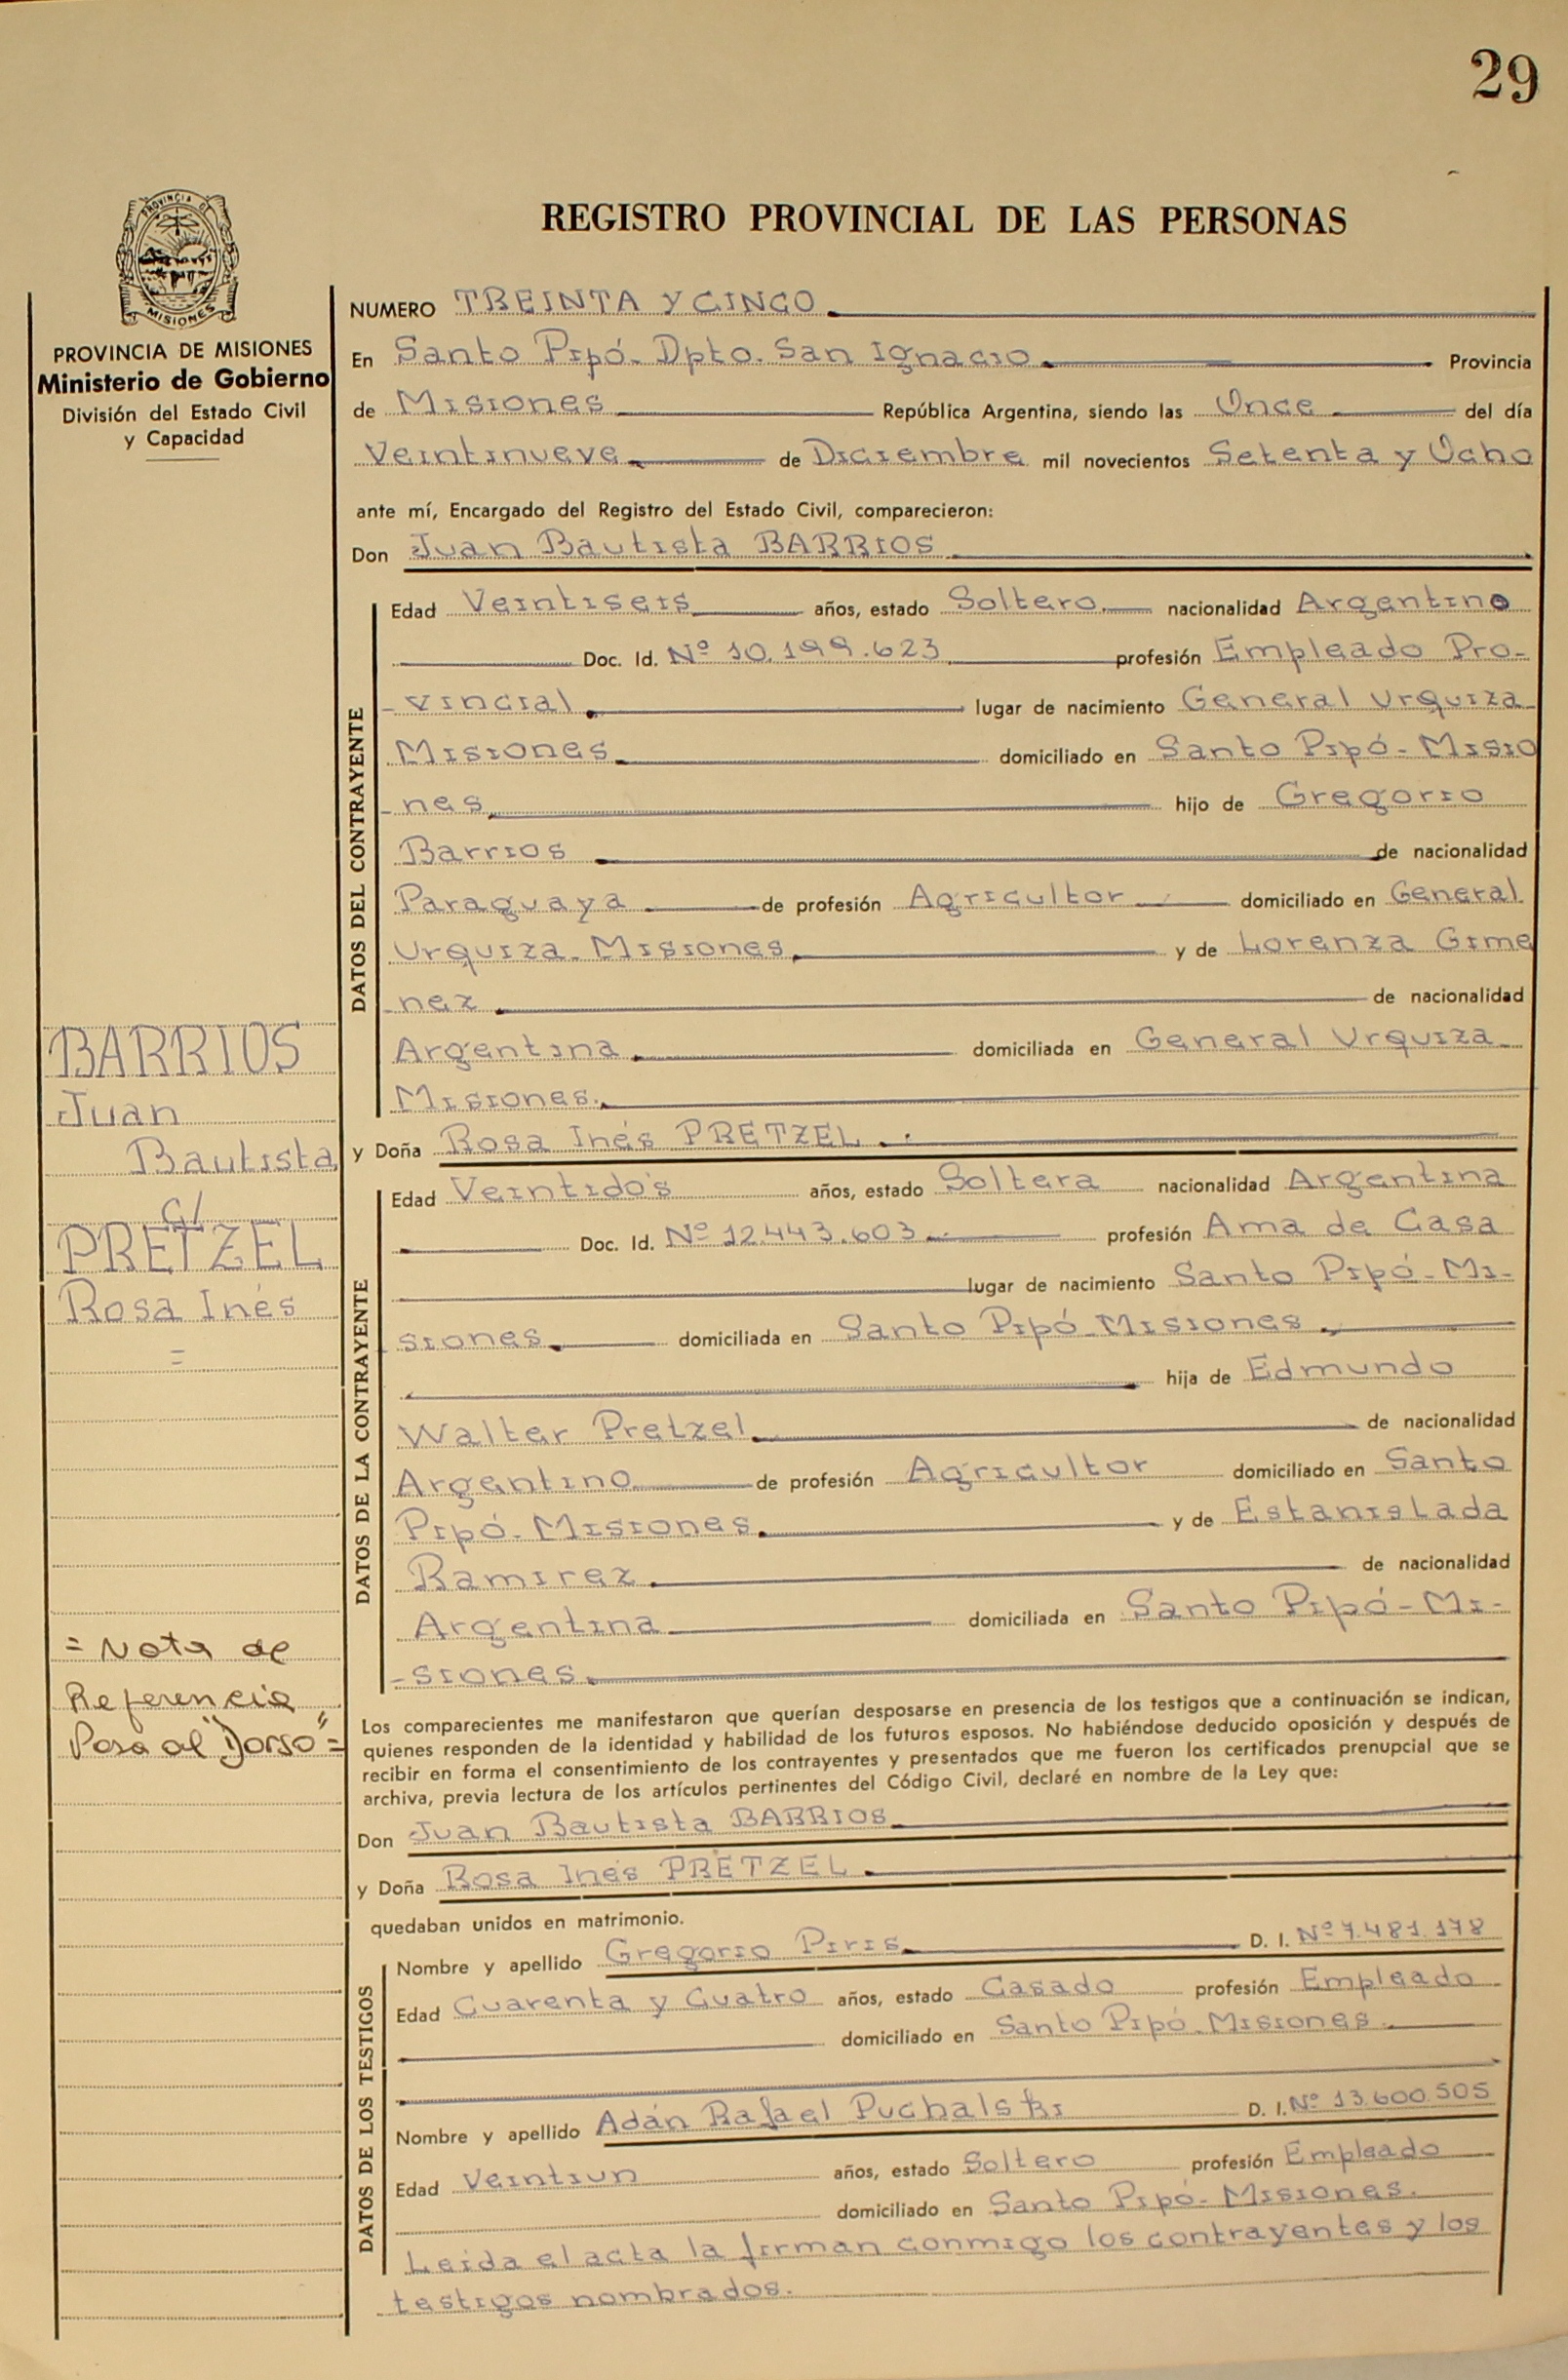 29
REGISTRO PROVINCIAL DE LAS PERSONAS
PROVINCIA DE
MISIONES
PROVINCIA DE MISIONES
Ministerio de Gobierno
División del Estado Civil
y Capacidad
NUMERO TREINTA Y CINCO
En Santo Pipó - Dpto. San Ignacio Provincia
de Misiones República Argentina, siendo las Once del día
Veintinueve de Diciembre mil novecientos Setenta y Ocho
ante mí, Encargado del Registro del Estado Civil, comparecieron:
Don Juan Bautista BARRIOS
DATOS DEL CONTRAYENTE
Edad Veintiseis años, estado Soltero nacionalidad Argentino
Doc. Id. Nº 10.199.623 profesión Empleado Pro-
-vincial lugar de nacimiento General Urquiza
Misiones domiciliado en Santo Pipó - Misio
-nes hijo de Gregorio
Barrios de nacionalidad
Paraguaya de profesión Agricultor domiciliado en General
Urquiza - Misiones y de Lorenza Gime
nez de nacionalidad
Argentina domiciliada en General Urquiza
Misiones.
y Doña Rosa Inés PRETZEL
DATOS DE LA CONTRAYENTE
Edad Veintidós años, estado Soltera nacionalidad Argentina
Doc. Id. Nº 12.443.603 profesión Ama de Casa
lugar de nacimiento Santo Pipó - Mi-
siones domiciliada en Santo Pipó - Misiones
hija de Edmundo
Walter Pretzel de nacionalidad
Argentino de profesión Agricultor domiciliado en Santo
Pipó - Misiones y de Estanislada
Ramirez de nacionalidad
Argentina domiciliada en Santo Pipó - Mi-
-siones
BARRIOS
Juan
Bautista
c/
PRETZEL
Rosa Inés
=
= Nota de
Referencia
Pasa al "Dorso" =
Los comparecientes me manifestaron que querían desposarse en presencia de los testigos que a continuación se indican,
quienes responden de la identidad y habilidad de los futuros esposos. No habiéndose deducido oposición y después de
recibir en forma el consentimiento de los contrayentes y presentados que me fueron los certificados prenupcial que se
archiva, previa lectura de los artículos pertinentes del Código Civil, declaré en nombre de la Ley que:
Don Juan Bautista BARRIOS
y Doña Rosa Inés PRETZEL
quedaban unidos en matrimonio.
DATOS DE LOS TESTIGOS
Nombre y apellido Gregorio Piris D. I. Nº 7.481.178
Edad Cuarenta y Cuatro años, estado Casado profesión Empleado
domiciliado en Santo Pipó - Misiones
Nombre y apellido Adán Rafael Puchalski D. I. Nº 13.600.505
Edad Veintiun años, estado Soltero profesión Empleado
domiciliado en Santo Pipó - Misiones.
Leida el acta la firman conmigo los contrayentes y los
testigos nombrados.